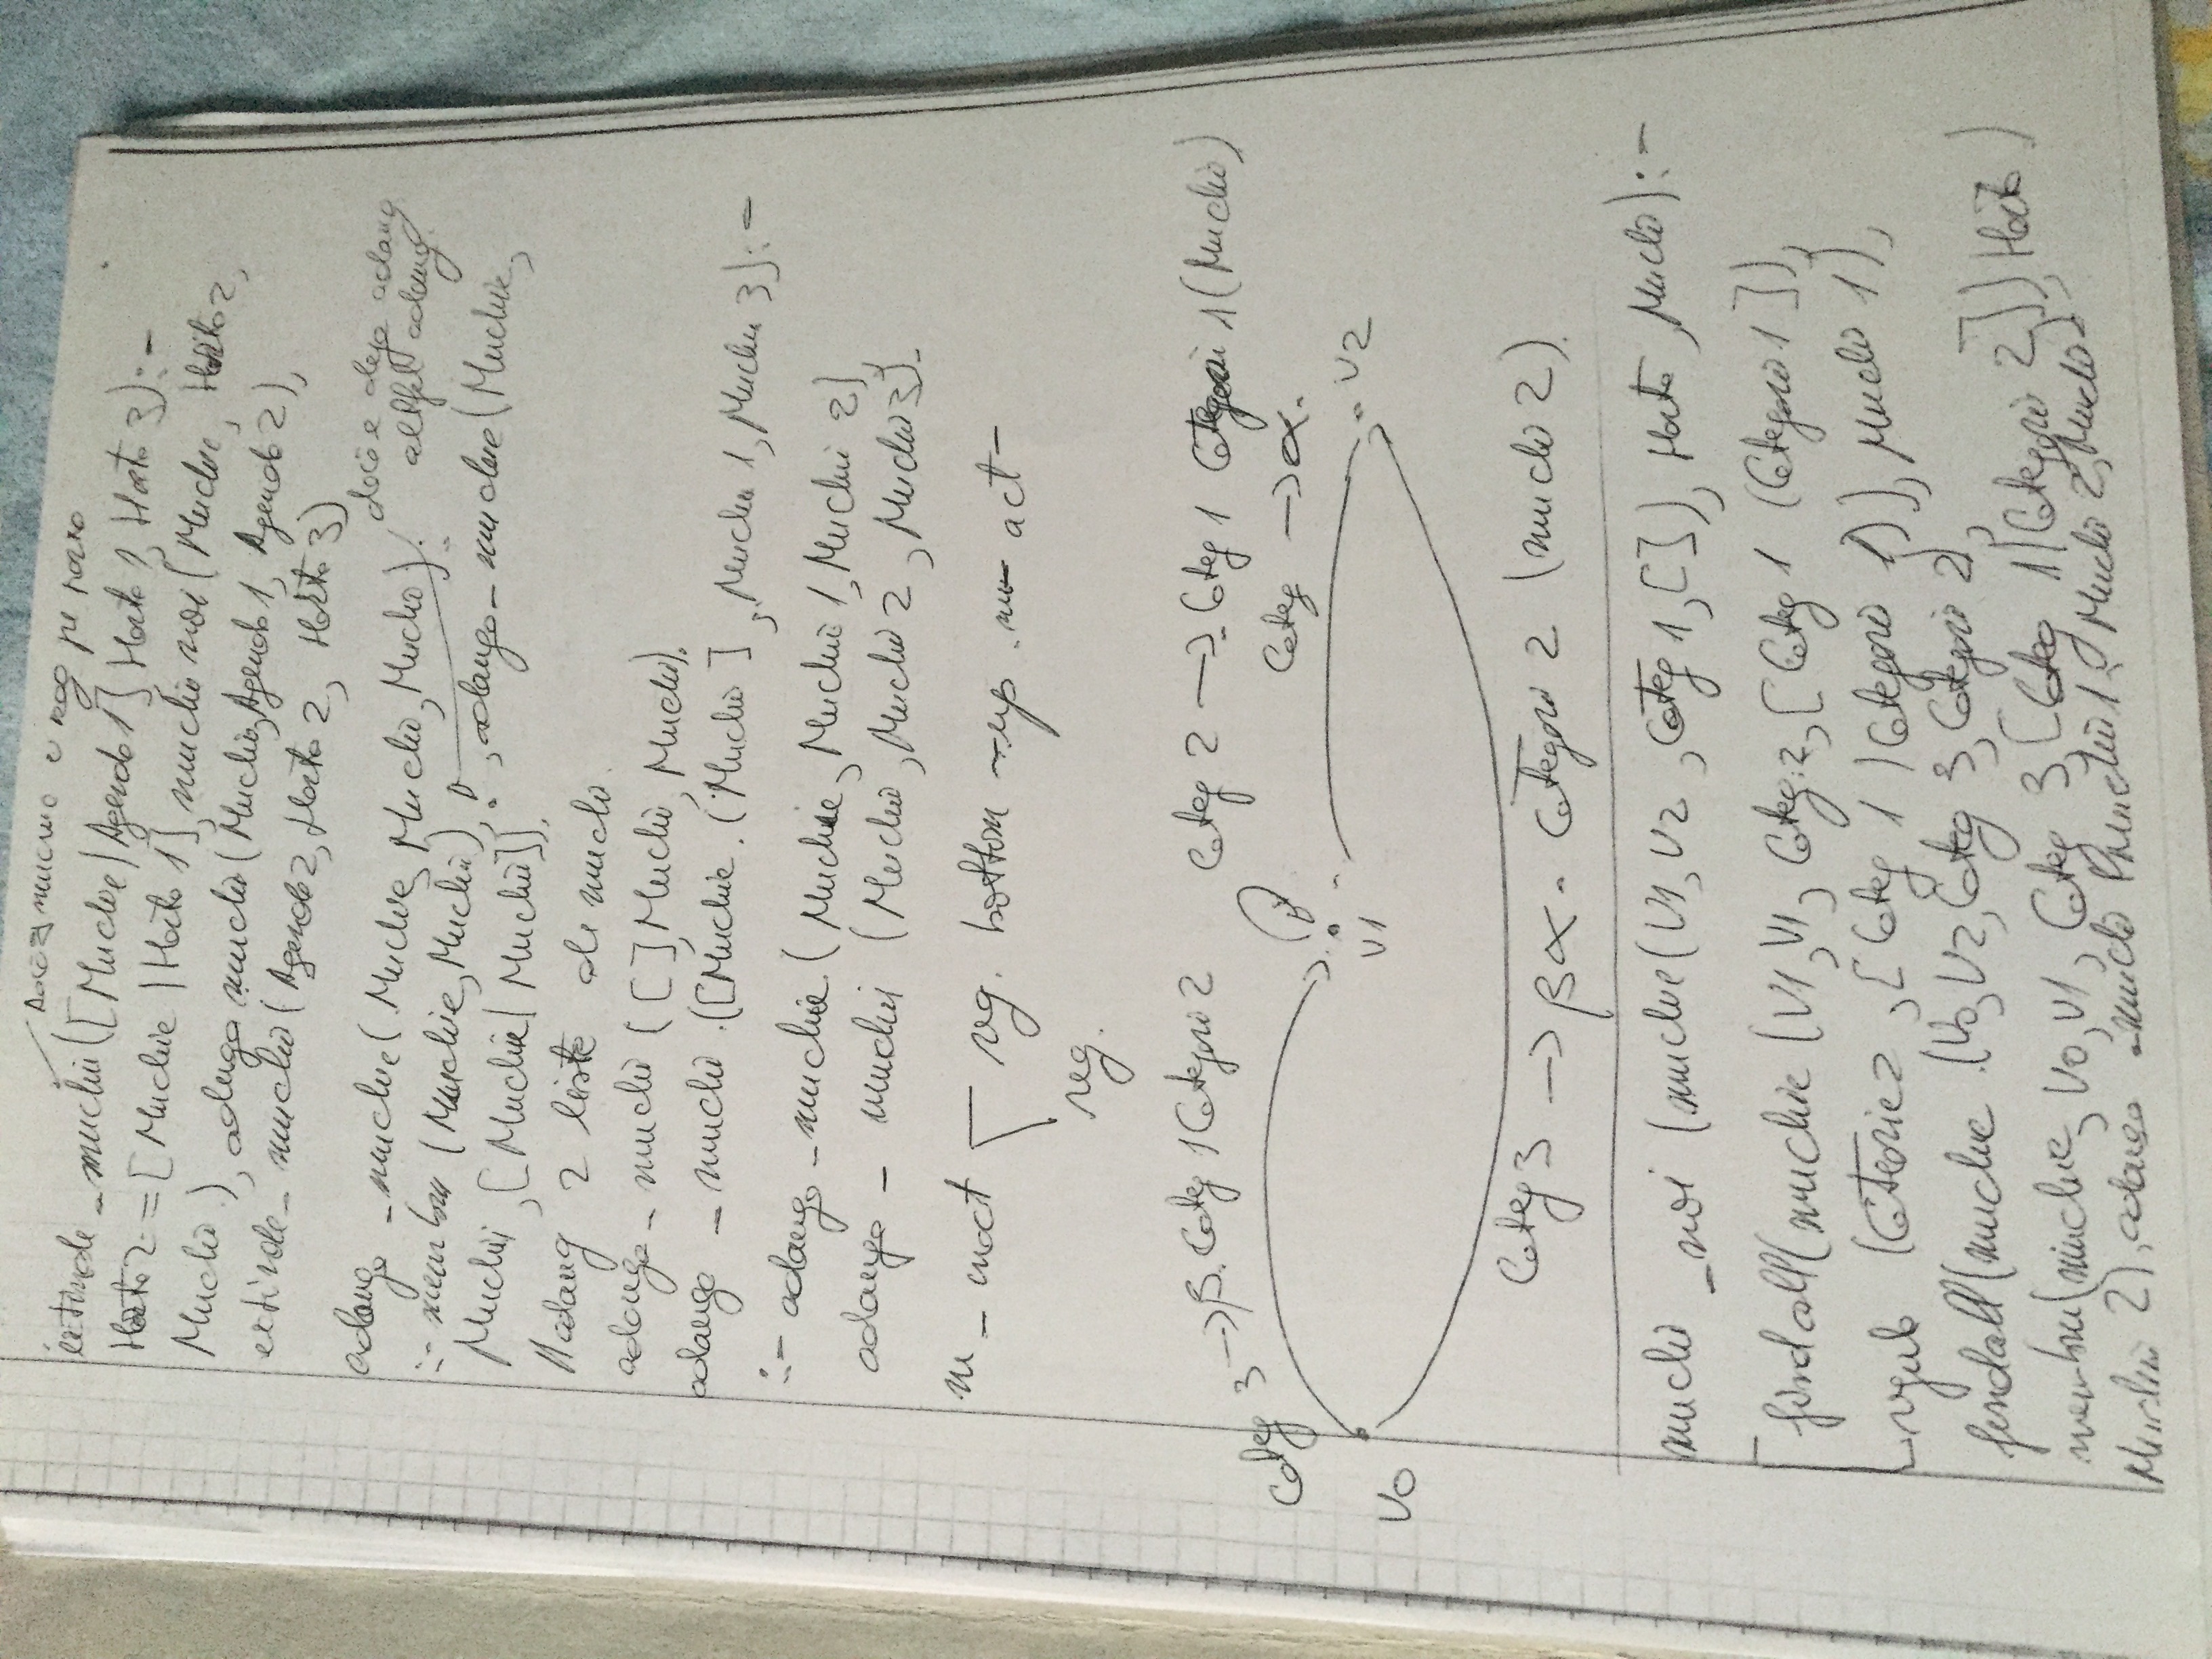 extinde_muchii([Muchie|Agenda1] Harta 1, Harta 3):-
Harta 2 = [Muchie | Harta 1], muchii noi (Muchie, Harta 2,
Muchii), adauga muchii(Muchii, Agenda 1, Agenda 2),
extinde_muchii(Agenda 2, Harta 2, Harta 3)
adauga_muchie(Muchie, Muchii, Muchii). daca e deja adaug
:- membru (Muchie, Muchii), !, adauga_muchie(Muchie, altfel adaug.
Muchii, [Muchie| Muchii]).
// adaug 2 liste de muchii.
adauga_muchii ([], Muchii, Muchii).
adauga_muchii ([Muchie | Muchii], Muchii 1, Muchii 3):-
:- adauga_muchie (Muchie, Muchii 1, Muchii 2),
adauga_muchii (Muchii, Muchii 2, Muchii 3).
m_inact reg. bottom-up m act
reg.
Categ 3 → β. Categ 1 Categorii 2 Categ 2 → . Categ 1 Categorii 1 (Muchii)
Categ → α.
V0 V1 V2
Categ 3 → β α . Categorii 2 (muchii 2).
muchii_noi (muchie(V1, V2, Categ 1, []), Harta, Muchii):-
findall(muchie (V1, V1, Categ 2, [Categ 1 | Categorii 1]),
regula (Categorie 2, [Categ 1 | Categorii 1]), Muchii 1),
findall(muchie (V0, V2, Categ 3, Categorii 2),
membru(muchie, V0, V1, Categ 3, [Categ 1 | Categorii 2]), Harta)
Muchii 2), adauga_muchii (muchii 1, Muchii 2, Muchii